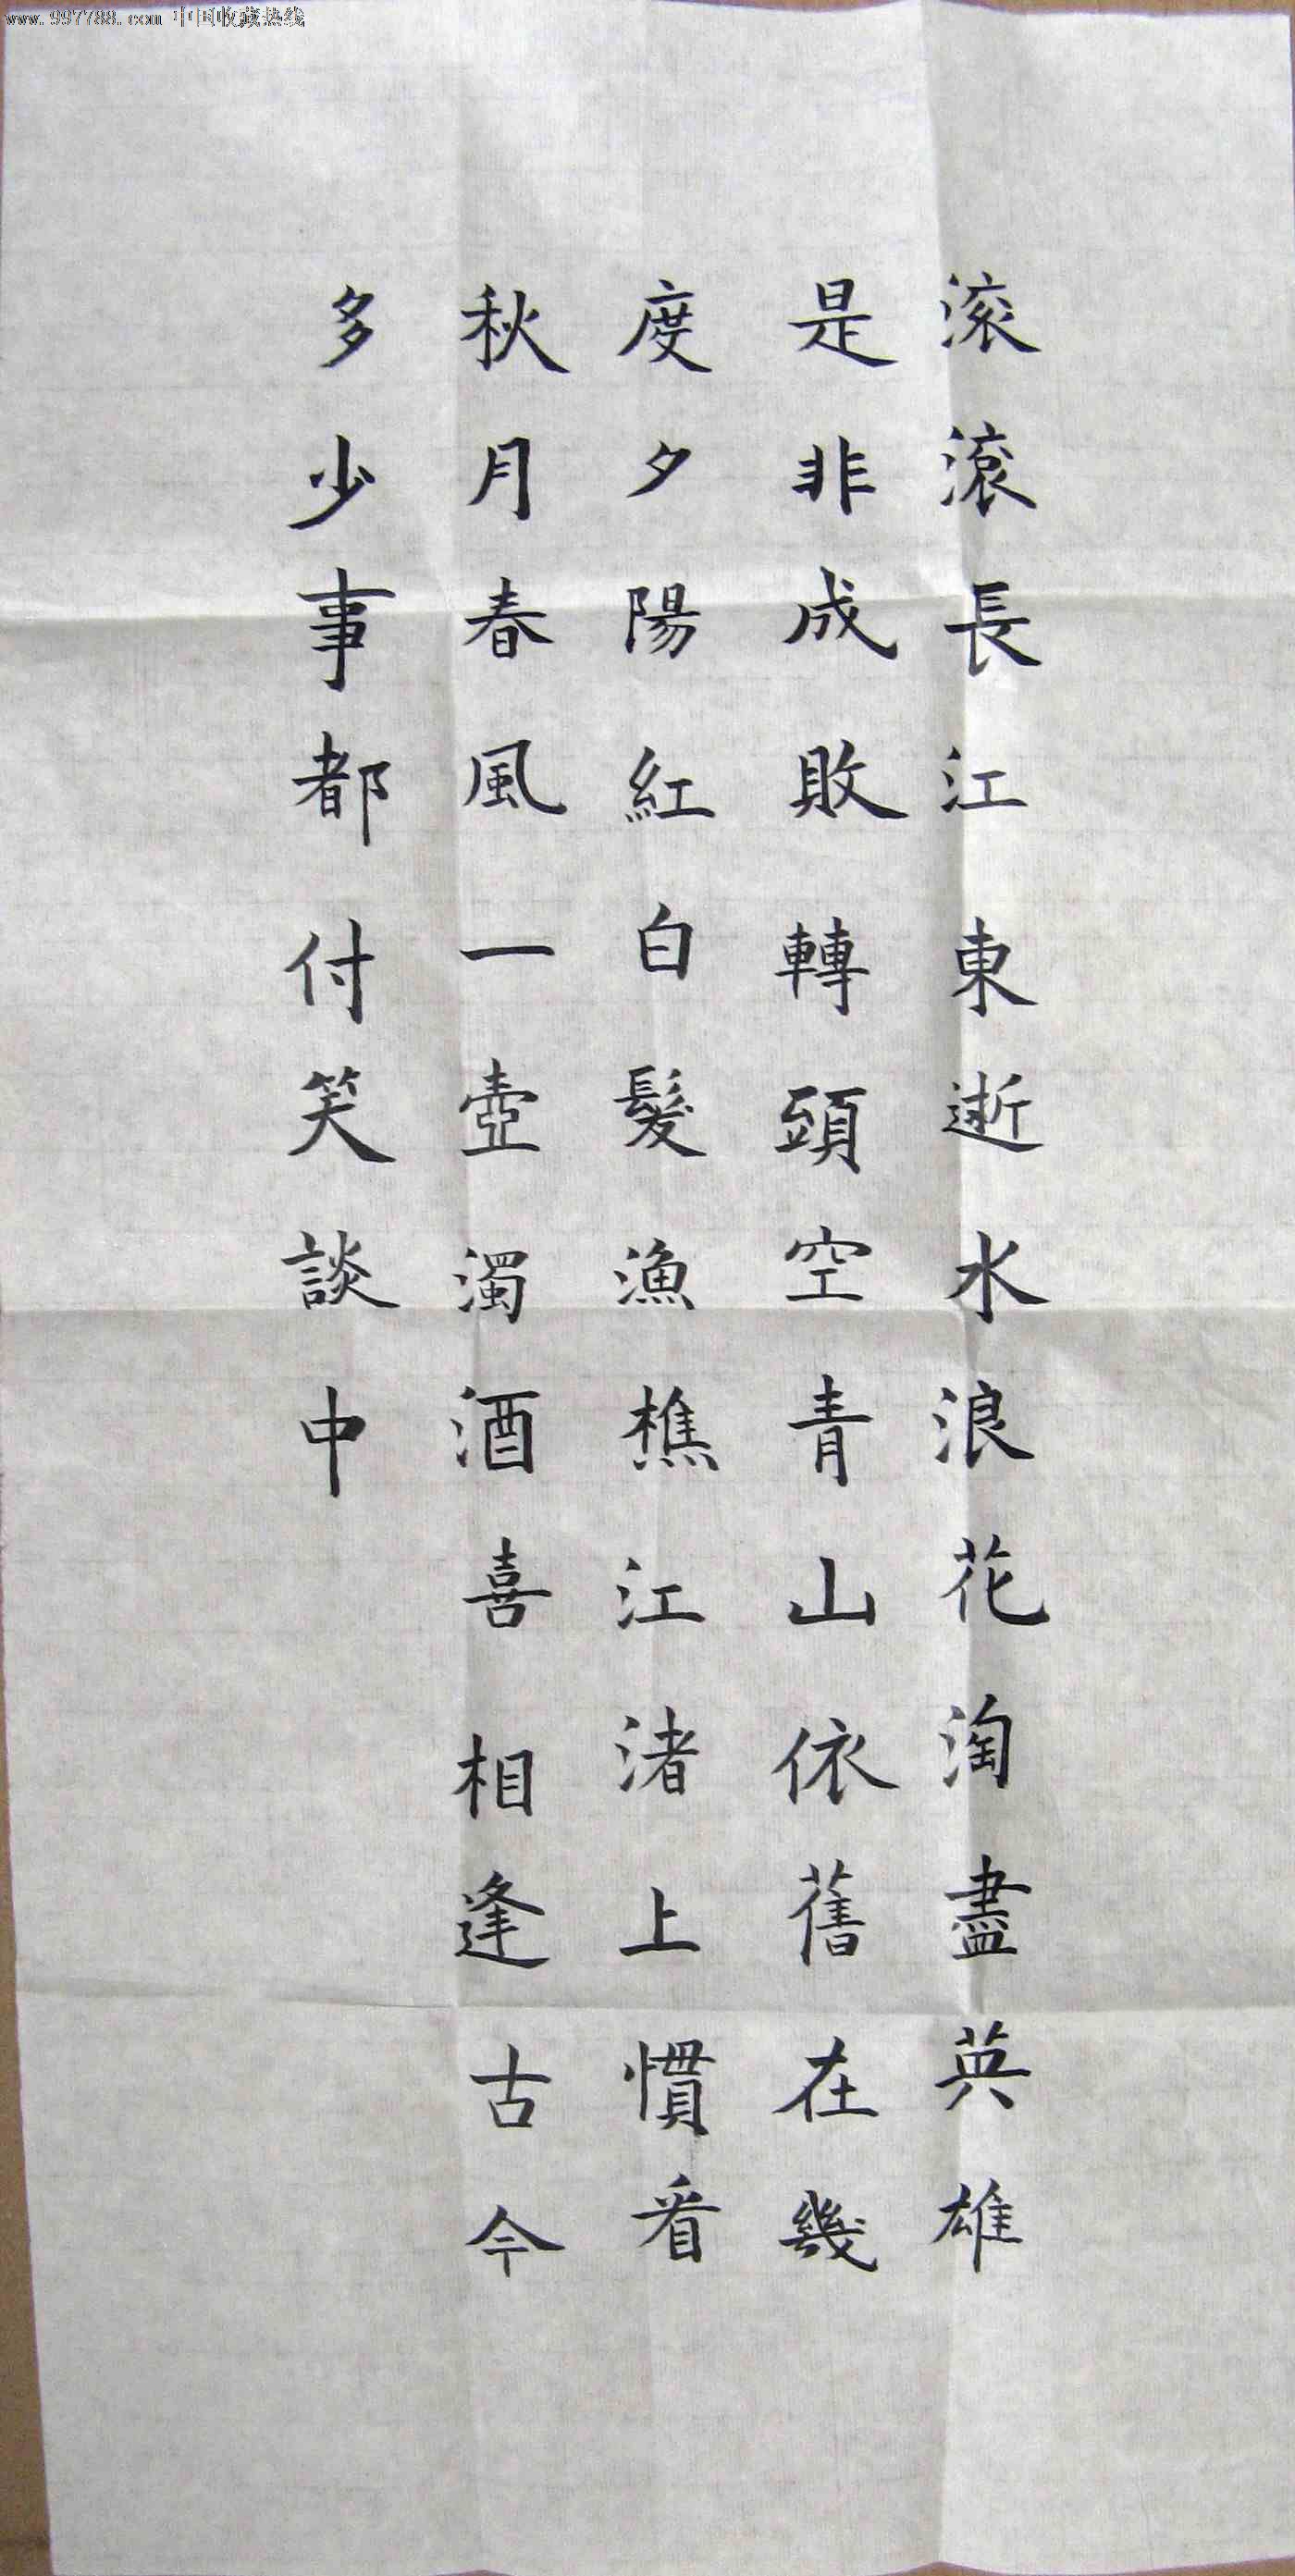 www.997788.com 中国收藏热线
滚滚長江東逝水浪花淘盡英雄
是非成敗轉頭空青山依舊在幾
度夕陽紅白髮漁樵江渚上慣看
秋月春風一壺濁酒喜相逢古今
多少事都付笑談中